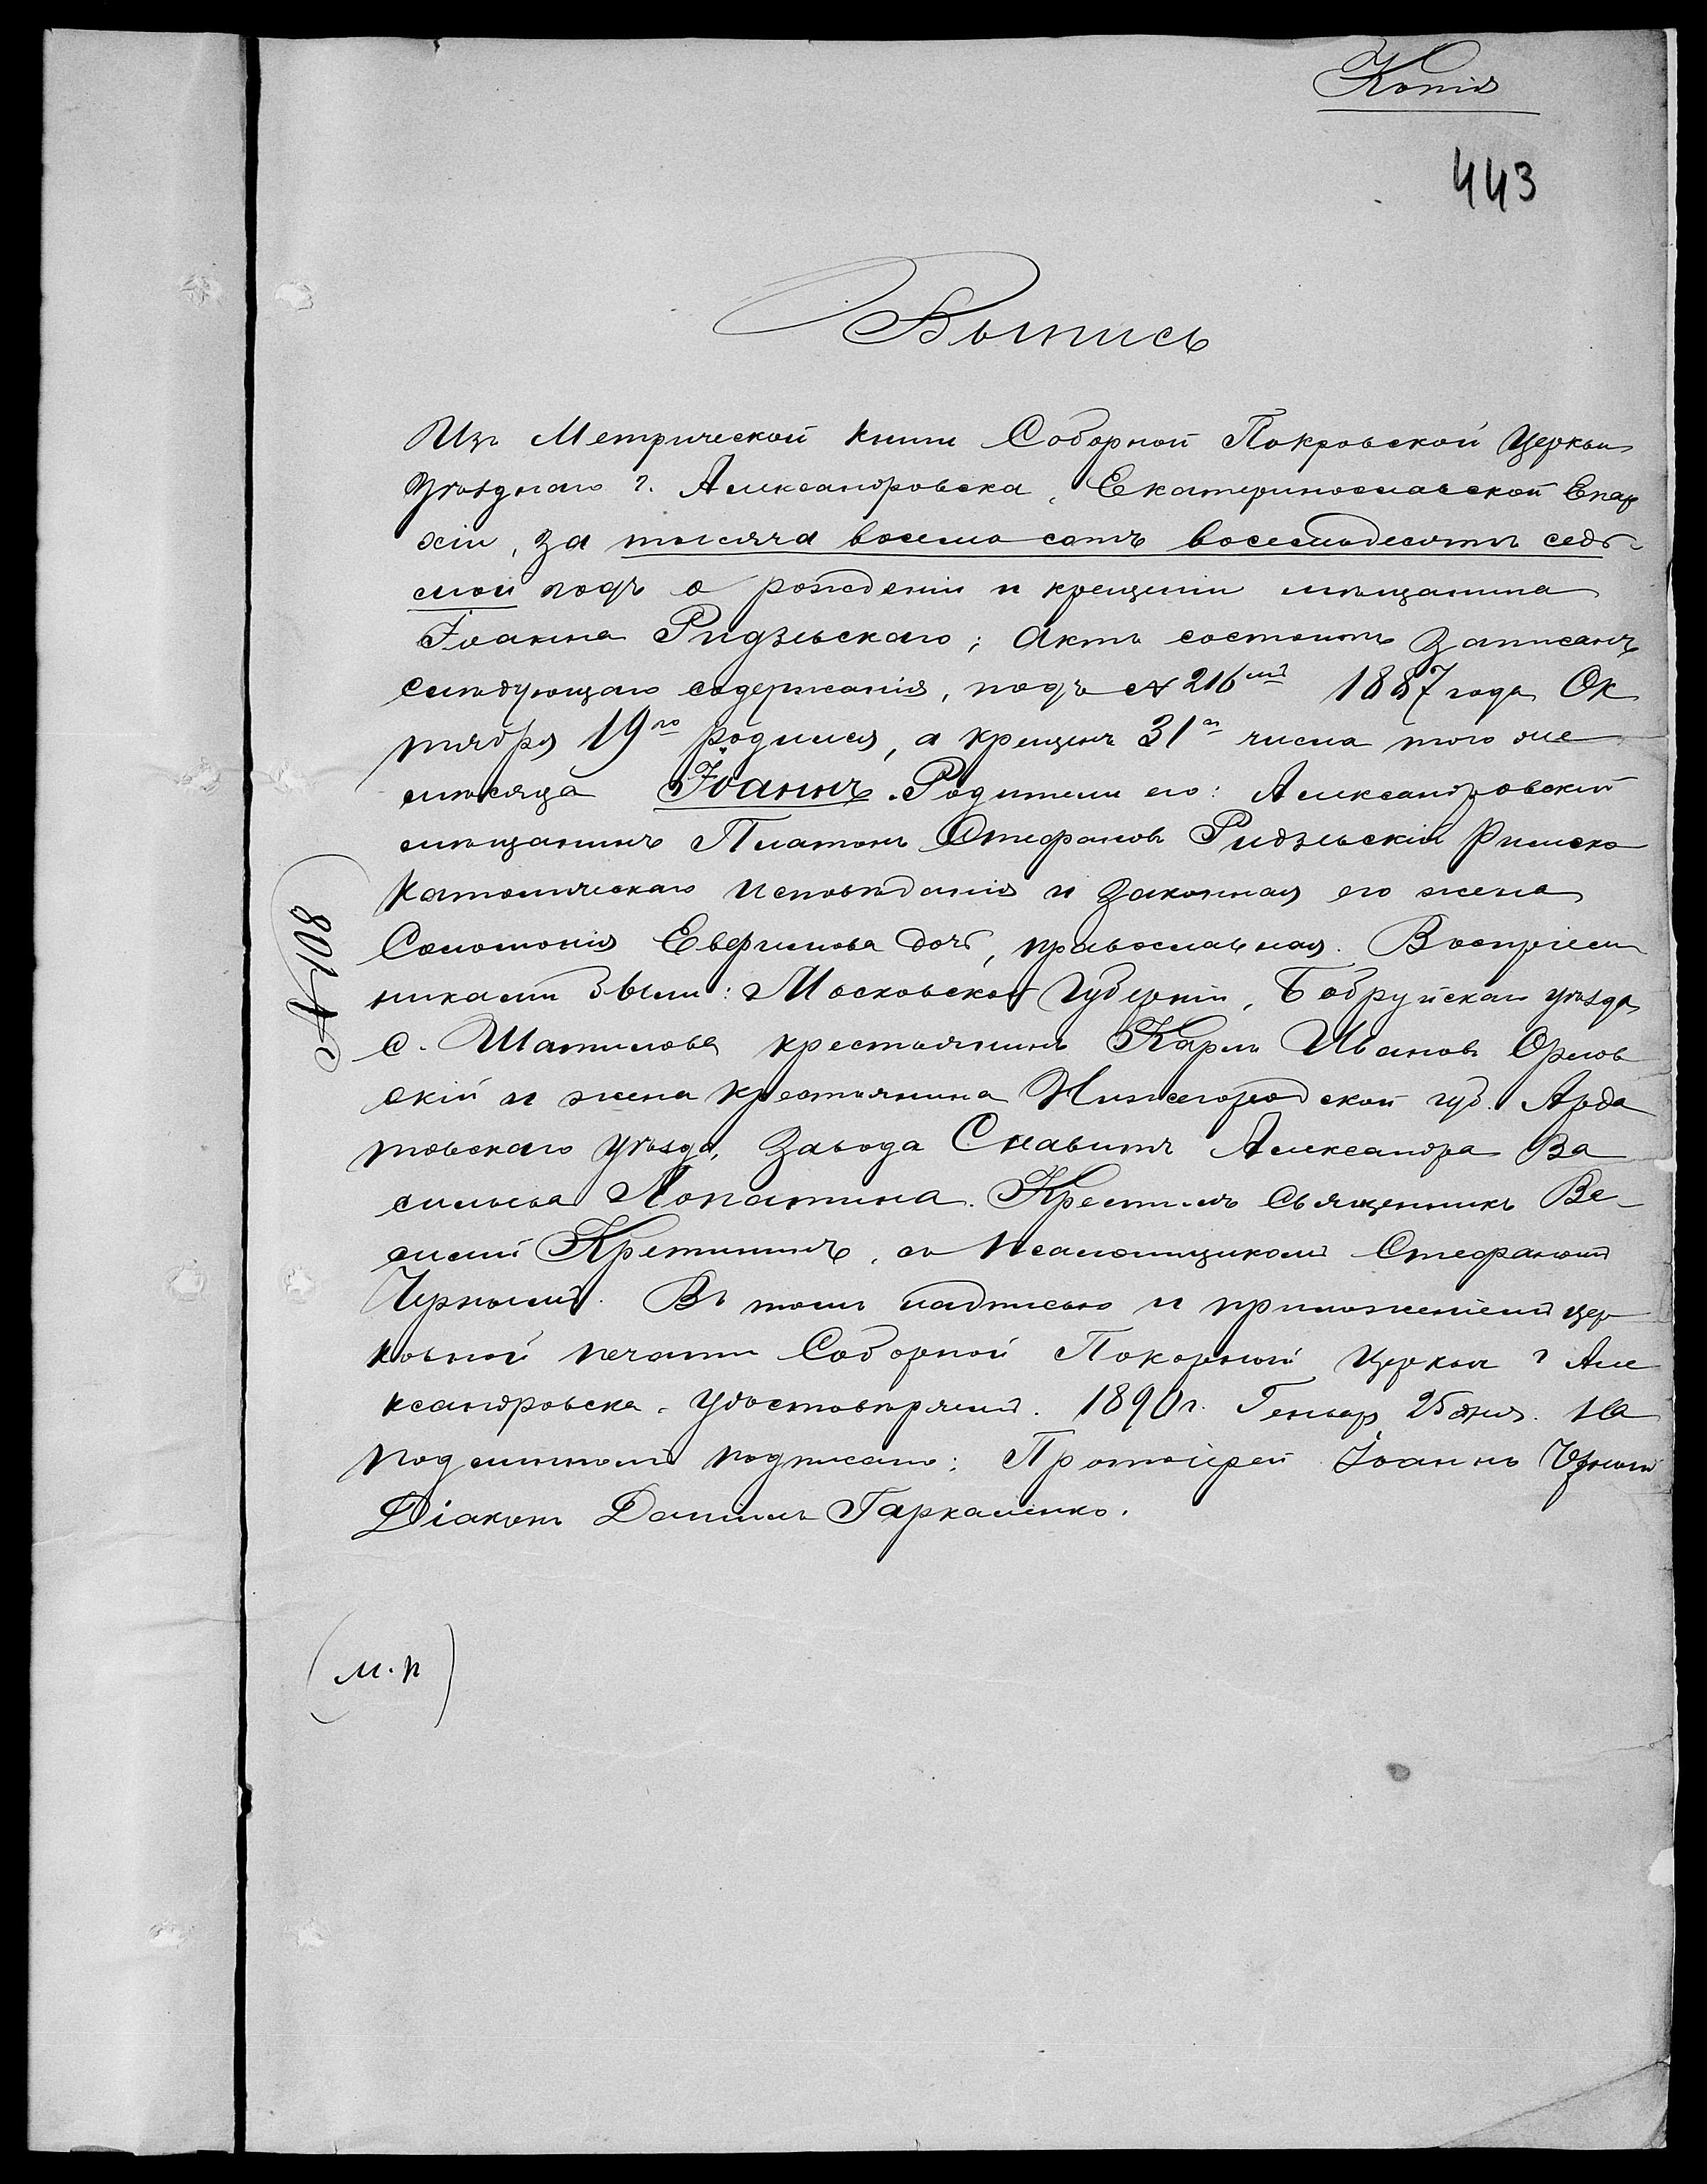 Копія
443
Выпись
Изъ Метрической книги Соборной Покровской Церкви
Уѣзднаго г. Александровска, Екатеринославской Епар
хіи, за тысяча восемь сотъ восемьдесятъ седь-
мой годъ о рожденіи и крещеніи мѣщанина
Іоанна Ридзельскаго; Актъ состоитъ записанъ
слѣдующаго содержанія, подъ № 216мъ 1887 года Ок
тября 19го родился, а крещенъ 31го числа того же
мѣсяца Іоаннъ. Родители его: Александровскій
мѣщанинъ Платонъ Стефановъ Ридзельскій Римско
Католическаго исповѣданія и законная его жена
Соломонія Евфимова дочь, православная. Воспріем
никами были: Московской Губерніи, Бобруйскаго уѣзда,
с. Шатилова крестьянинъ Карлъ Ивановъ Орлов
скій и жена крестьянина Нижегородской губ. Арда
товскаго уѣзда, Завода Снаветь Александра Ва
сильева Лопатина. Крестилъ Священникъ Ва-
силій Кретининъ, съ Псаломщикомъ Стефаномъ
Чернымъ. Въ томъ надписью и приложеніемъ цер
ковной печати Соборной Покорной Церкви г Але
ксандровска удостовѣряемъ. 1890 г. Генвар 25 дня. На
подлинномъ подписано: Протоіерей Іоаннъ
Діаконъ Даніилъ Гаркаленко.
(м.п)
801